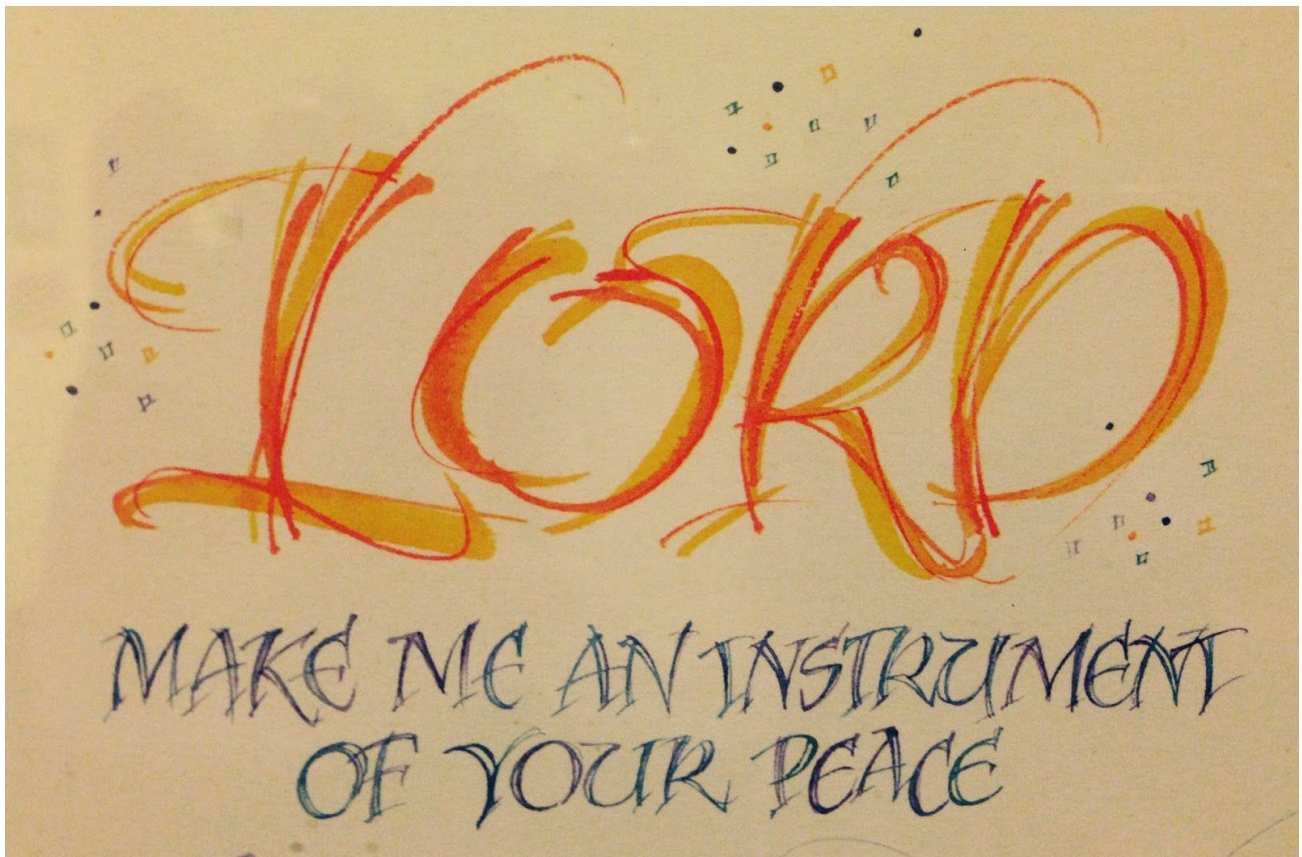 LORD
MAKE ME AN INSTRUMENT
OF YOUR PEACE